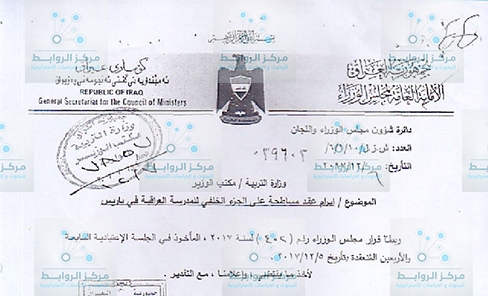 جمهورية العراق
الأمانة العامة لمجلس الوزراء
كۆماری عێراق
REPUBLIC OF IRAQ
General Secretariat for the Council of Ministers
دائرة شؤون مجلس الوزراء واللجان
العدد: ش.ز.ل/١٠/٦/
٠٣٩٦٠٢
التاريخ:
وزارة التربية / مكتب الوزير
الموضوع / ابرام عقد مساطحة على الجزء الخلفي للمدرسة العراقية في باريس
ربطاً قرار مجلس الوزراء رقم (٤٠٢) لسنة ٢٠١٧، المأخوذ في الجلسة الاعتيادية السابعة
والأربعين المنعقدة بتاريخ ٢٠١٧/١٢/٥
لأخذ ما يقتضي، وإعلامنا، مع التقدير.
مركز الروابط
للبحوث والدراسات الاستراتيجية